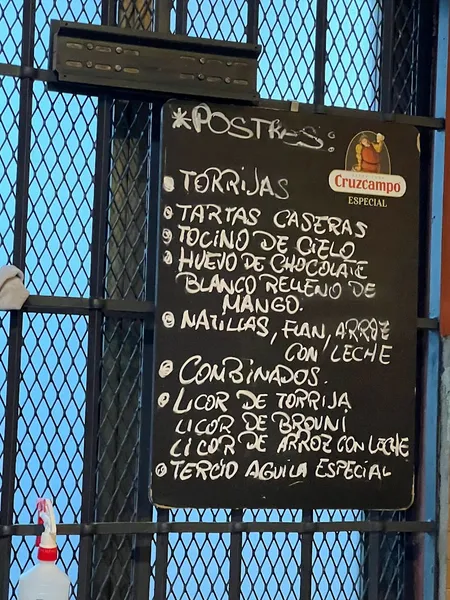 *POSTRES:
Cruzcampo
ESPECIAL
TORRIJAS
TARTAS CASERAS
TOCINO DE CIELO
HUEVO DE CHOCOLATE
BLANCO RELLENO DE
MANGO.
NATILLAS, FLAN, ARROZ
CON LECHE
COMBINADOS.
LICOR DE TORRIJA
LICOR DE BROUNI
LICOR DE ARROZ CON LECHE
TERCIO AGUILA ESPECIAL